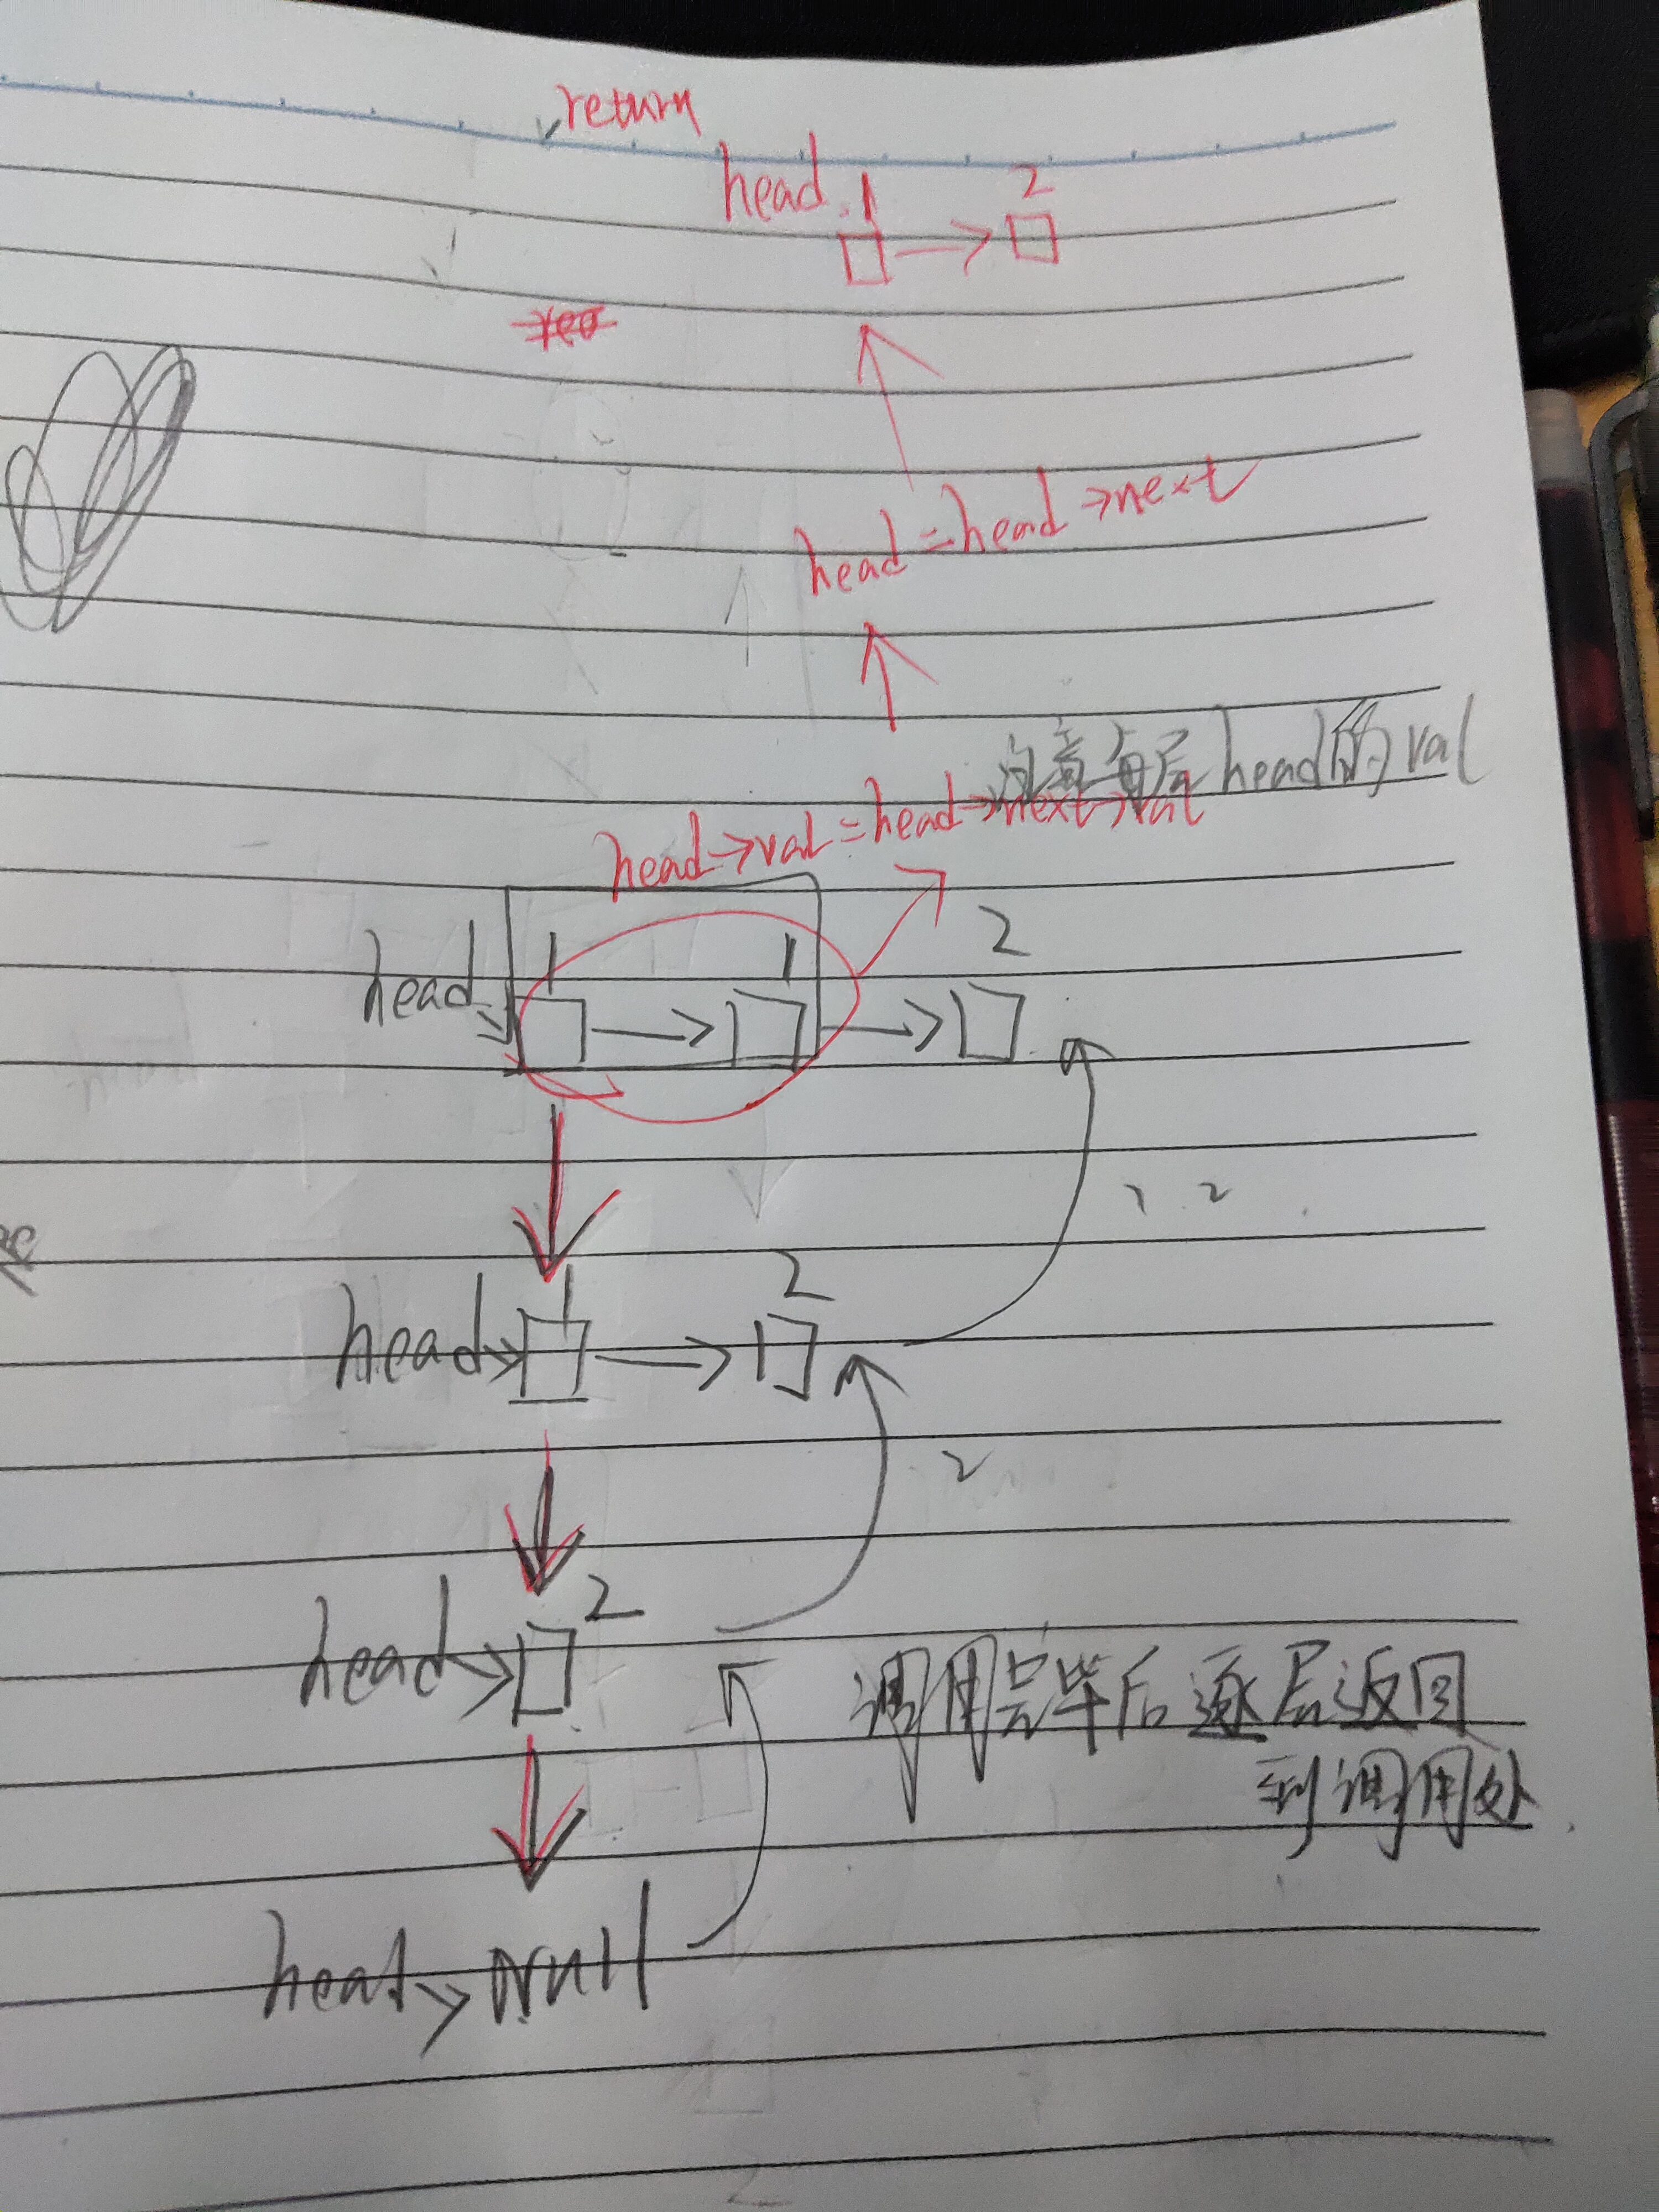 return
head 1 2
head = head → next
注意每层 head 的 val
head → val = head → next → val
head 1 1 2
1 2
head 1 2
2
head 2
调用完毕后逐层返回
到调用处
head → null